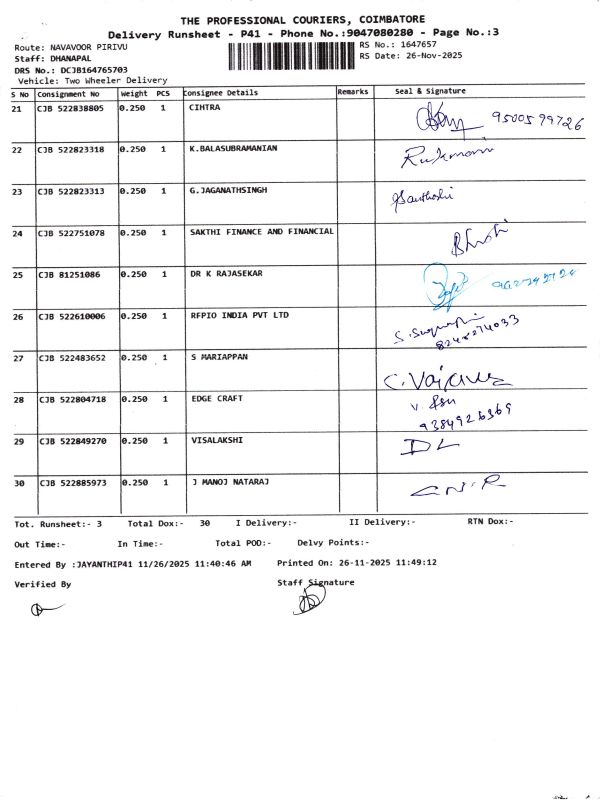 THE PROFESSIONAL COURIERS, COIMBATORE
Delivery Runsheet - P41 - Phone No.:9047080280 - Page No.:3
Route: NAVAVOOR PIRIVU
RS No.: 1647657
Staff: DHANAPAL
RS Date: 26-Nov-2025
DRS No.: DCJB164765703
Vehicle: Two Wheeler Delivery
S No Consignment No Weight PCS Consignee Details Remarks Seal & Signature
21 CJB 522838805 0.250 1 CIHTRA 9500599726
22 CJB 522823318 0.250 1 K.BALASUBRAMANIAN Rukmani
23 CJB 522823313 0.250 1 G.JAGANATHSINGH
24 CJB 522751078 0.250 1 SAKTHI FINANCE AND FINANCIAL
25 CJB 81251086 0.250 1 DR K RAJASEKAR
26 CJB 522610006 0.250 1 RFPIO INDIA PVT LTD
8248274033
27 CJB 522483652 0.250 1 S MARIAPPAN
28 CJB 522804718 0.250 1 EDGE CRAFT
29 CJB 522849270 0.250 1 VISALAKSHI DL
30 CJB 522885973 0.250 1 J MANOJ NATARAJ
Tot. Runsheet:- 3 Total Dox:- 30 I Delivery:- II Delivery:- RTN Dox:-
Out Time:- In Time:- Total POD:- Delvy Points:-
Entered By :JAYANTHIP41 11/26/2025 11:40:46 AM Printed On: 26-11-2025 11:49:12
Verified By Staff Signature